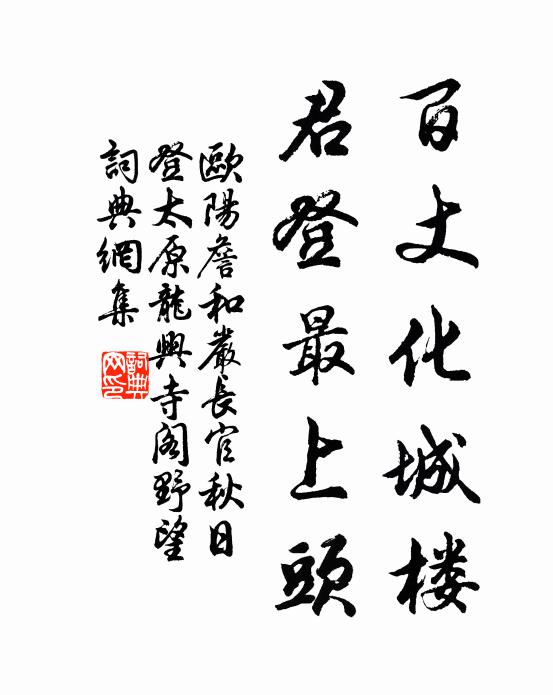 百丈化城楼
君登最上頭
歐陽詹和嚴長官秋日
登太原龍興寺阁野望
詞典網集
詞典網印